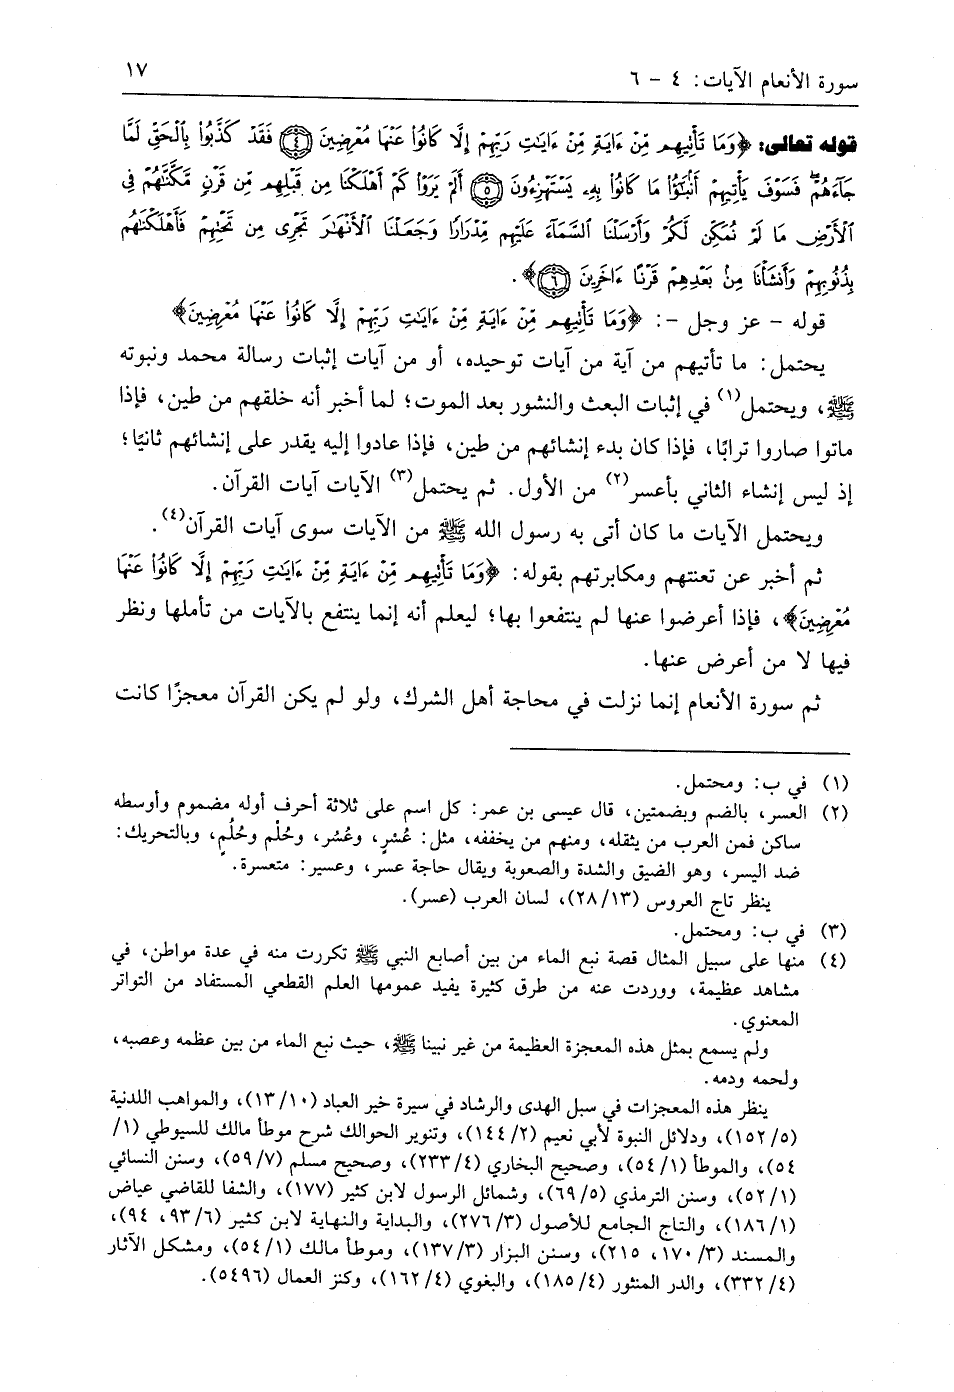 سورة الأنعام الآيات: ٤ - ٦
١٧
قوله تعالى: ﴿وَمَا تَأْتِيهِم مِّنْ ءَايَةٍ مِّنْ ءَايَٰتِ رَبِّهِمْ إِلَّا كَانُوا۟ عَنْهَا مُعْرِضِينَ ٤ فَقَدْ كَذَّبُوا۟ بِٱلْحَقِّ لَمَّا
جَآءَهُمْ ۖ فَسَوْفَ يَأْتِيهِمْ أَنۢبَٰٓؤُا۟ مَا كَانُوا۟ بِهِۦ يَسْتَهْزِءُونَ ٥ أَلَمْ يَرَوْا۟ كَمْ أَهْلَكْنَا مِن قَبْلِهِم مِّن قَرْنٍ مَّكَّنَّٰهُمْ فِى
ٱلْأَرْضِ مَا لَمْ نُمَكِّن لَّكُمْ وَأَرْسَلْنَا ٱلسَّمَآءَ عَلَيْهِم مِّدْرَارًا وَجَعَلْنَا ٱلْأَنْهَٰرَ تَجْرِى مِن تَحْتِهِمْ فَأَهْلَكْنَٰهُم
بِذُنُوبِهِمْ وَأَنشَأْنَا مِنۢ بَعْدِهِمْ قَرْنًا ءَاخَرِينَ ٦﴾.
قوله - عز وجل -: ﴿وَمَا تَأْتِيهِم مِّنْ ءَايَةٍ مِّنْ ءَايَٰتِ رَبِّهِمْ إِلَّا كَانُوا۟ عَنْهَا مُعْرِضِينَ﴾
يحتمل: ما تأتيهم من آية من آيات توحيده، أو من آيات إثبات رسالة محمد ونبوته
ﷺ، ويحتمل(١) في إثبات البعث والنشور بعد الموت؛ لما أخبر أنه خلقهم من طين، فإذا
ماتوا صاروا ترابًا، فإذا كان بدء إنشائهم من طين، فإذا عادوا إليه يقدر على إنشائهم ثانيًا؛
إذ ليس إنشاء الثاني بأعسر(٢) من الأول. ثم يحتمل(٣) الآيات آيات القرآن.
ويحتمل الآيات ما كان أتى به رسول الله ﷺ من الآيات سوى آيات القرآن(٤).
ثم أخبر عن تعنتهم ومكابرتهم بقوله: ﴿وَمَا تَأْتِيهِم مِّنْ ءَايَةٍ مِّنْ ءَايَٰتِ رَبِّهِمْ إِلَّا كَانُوا۟ عَنْهَا
مُعْرِضِينَ﴾، فإذا أعرضوا عنها لم ينتفعوا بها؛ ليعلم أنه إنما ينتفع بالآيات من تأملها ونظر
فيها لا من أعرض عنها.
ثم سورة الأنعام إنما نزلت في محاجة أهل الشرك، ولو لم يكن القرآن معجزًا كانت
(١) في ب: ومحتمل.
(٢) العسر، بالضم وبضمتين، قال عيسى بن عمر: كل اسم على ثلاثة أحرف أوله مضموم وأوسطه
ساكن فمن العرب من يثقله، ومنهم من يخففه، مثل: عُسْرٍ، وعُسُر، وحُلْم وحُلُم، وبالتحريك:
ضد اليسر، وهو الضيق والشدة والصعوبة ويقال حاجة عسر، وعسير: متعسرة.
ينظر تاج العروس (٢٨/١٣)، لسان العرب (عسر).
(٣) في ب: ومحتمل.
(٤) منها على سبيل المثال قصة نبع الماء من بين أصابع النبي ﷺ تكررت منه في عدة مواطن، في
مشاهد عظيمة، ووردت عنه من طرق كثيرة يفيد عمومها العلم القطعي المستفاد من التواتر
المعنوي.
ولم يسمع بمثل هذه المعجزة العظيمة من غير نبينا ﷺ، حيث نبع الماء من بين عظمه وعصبه،
ولحمه ودمه.
ينظر هذه المعجزات في سبل الهدى والرشاد في سيرة خير العباد (١٣/١٠)، والمواهب اللدنية
(١٥٢/٥)، ودلائل النبوة لأبي نعيم (١٤٤/٢)، وتنوير الحوالك شرح موطأ مالك للسيوطي (١/
٥٤)، والموطأ (٥٤/١)، وصحيح البخاري (٢٣٣/٤)، وصحيح مسلم (٥٩/٧)، وسنن النسائي
(٥٢/١)، وسنن الترمذي (٦٩/٥)، وشمائل الرسول لابن كثير (١٧٧)، والشفا للقاضي عياض
(١٨٦/١)، والتاج الجامع للأصول (٢٧٦/٣)، والبداية والنهاية لابن كثير (٩٣/٦، ٩٤)،
والمسند (١٧٠/٣، ٢١٥)، وسنن البزار (١٣٧/٣)، وموطأ مالك (٥٤/١)، ومشكل الآثار
(٣٣٢/٤)، والدر المنثور (١٨٥/٤)، والبغوي (١٦٢/٤)، وكنز العمال (٥٤٩٦).